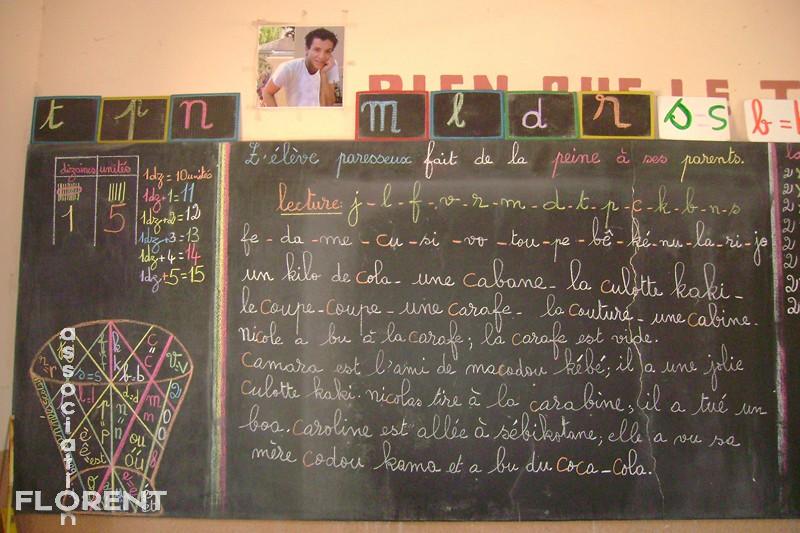 BIEN QUE LE T
t p n m l d r s=s b=
dizaines unités
1 5
1dz = 10 unités
1dz+1=11
1dz+2=12
1dz+3=13
1dz+4=14
1dz+5=15
L'élève paresseux fait de la peine à ses parents.
lecture: j-l-f-v-r-m-d-t-p-c-k-b-n-s
fe-da-me-cu-si-vo-tou-pe-bê-ké-nu-la-ri-jo
un kilo de cola-une cabane-la culotte kaki-
le coupe-coupe-une carafe-la couture-une cabine.
Nicole a bu à la carafe; la carafe est vide.
Camara est l'ami de macodou kébé; il a une jolie
culotte kaki. nicolas tire à la carabine; il a tué un
boa. Caroline est allée à sébikotane; elle a vu sa
mère codou kama et a bu du coca-cola.
association
FLORENT